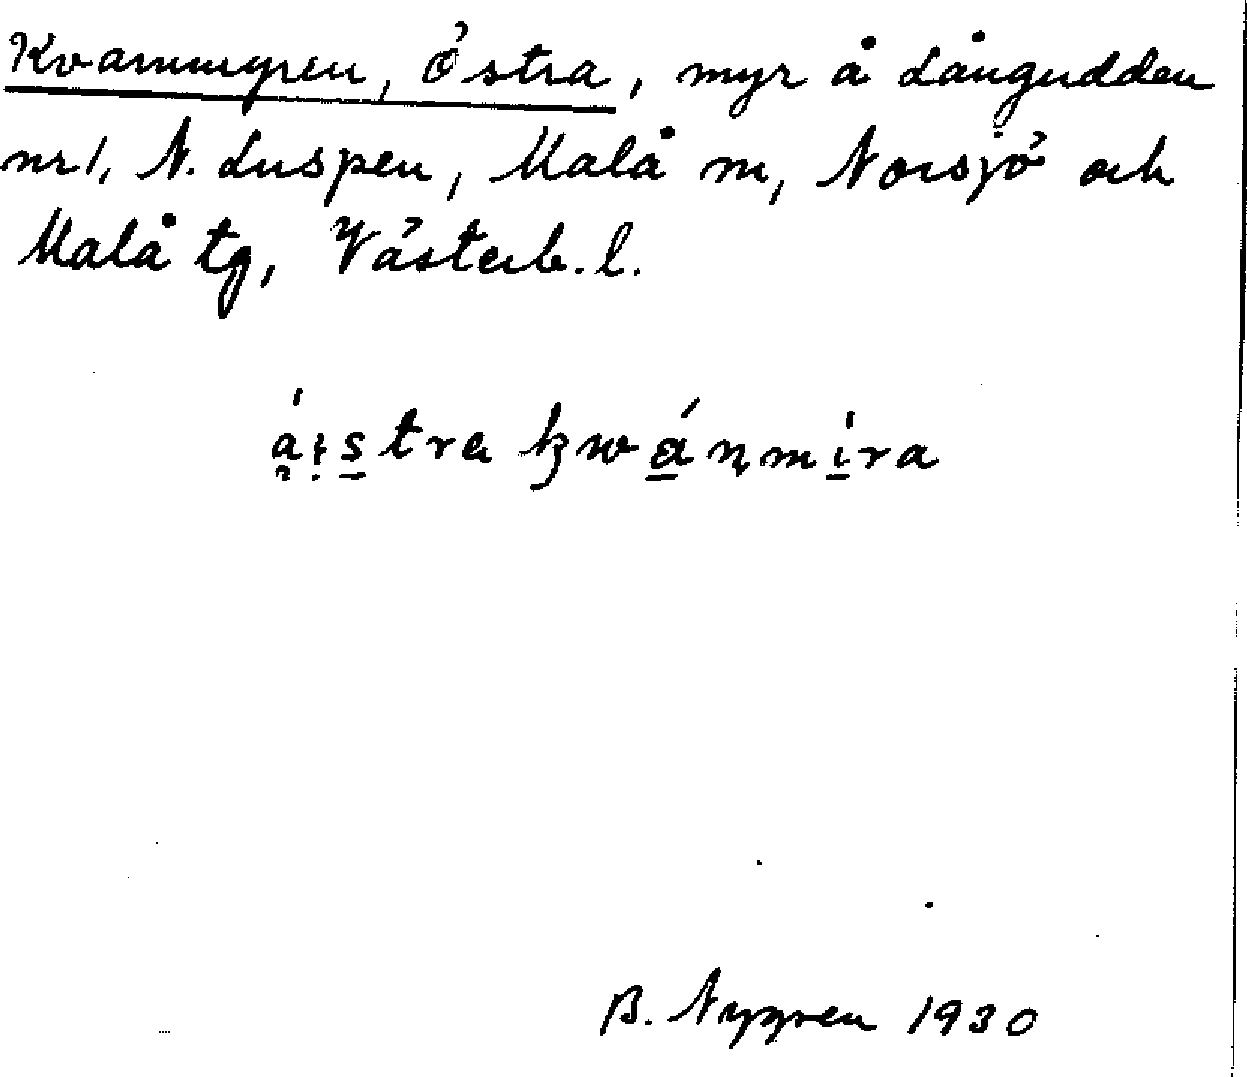 Kvarnmyren, Östra, myr å Långudden
nr 1, N. Luspen, Malå sn, Norsjö och
Malå tg, Västerb. l.
B. Nygren 1930